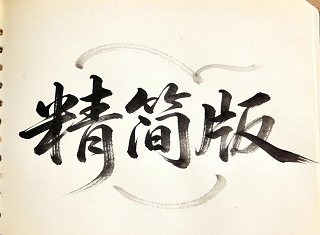 精简版